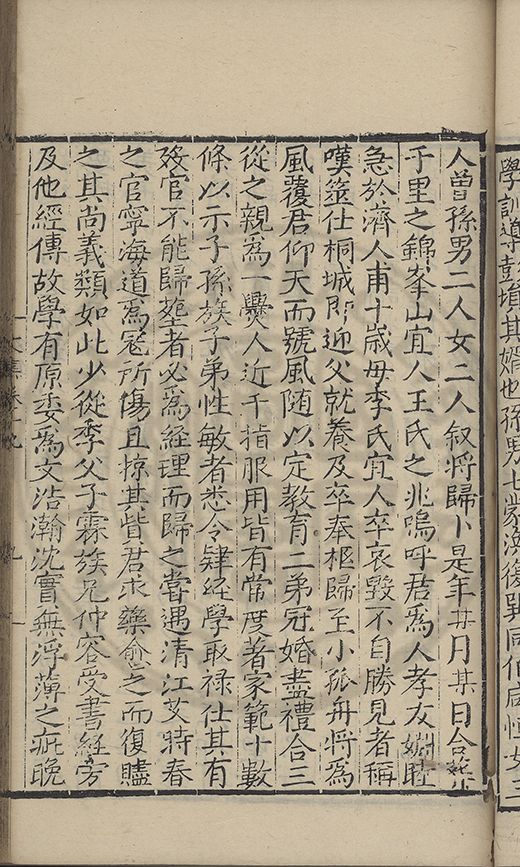 學訓導彭埙其婿也孫男七
人曾孫男二人女二人叙將歸卜是年某月某日合
于里之錦峯山宜人王氏之兆嗚呼君爲人孝友婣睦
急於濟人甫十歲母李氏宜人卒哀毀不自勝見者稱
嘆筮仕桐城即迎父就養及卒奉柩歸至小孤舟將爲
風覆君仰天而號風随以定教育二弟冠婚盡禮合三
從之親爲一爨人近千指服用皆有常度著家範十數
條以示子孫族子弟性敏者悉令肄經學取禄仕其有
發官不能歸塟者必爲経理而歸之嘗遇清江艾特春
之官寧海道爲冦所傷且掠其貲君求藥愈之而復贐
之其尚義類如此少從季父子霖族兄仲容受書経旁
及他經傳故學有原委爲文浩瀚沈實無浮薄之疵晩